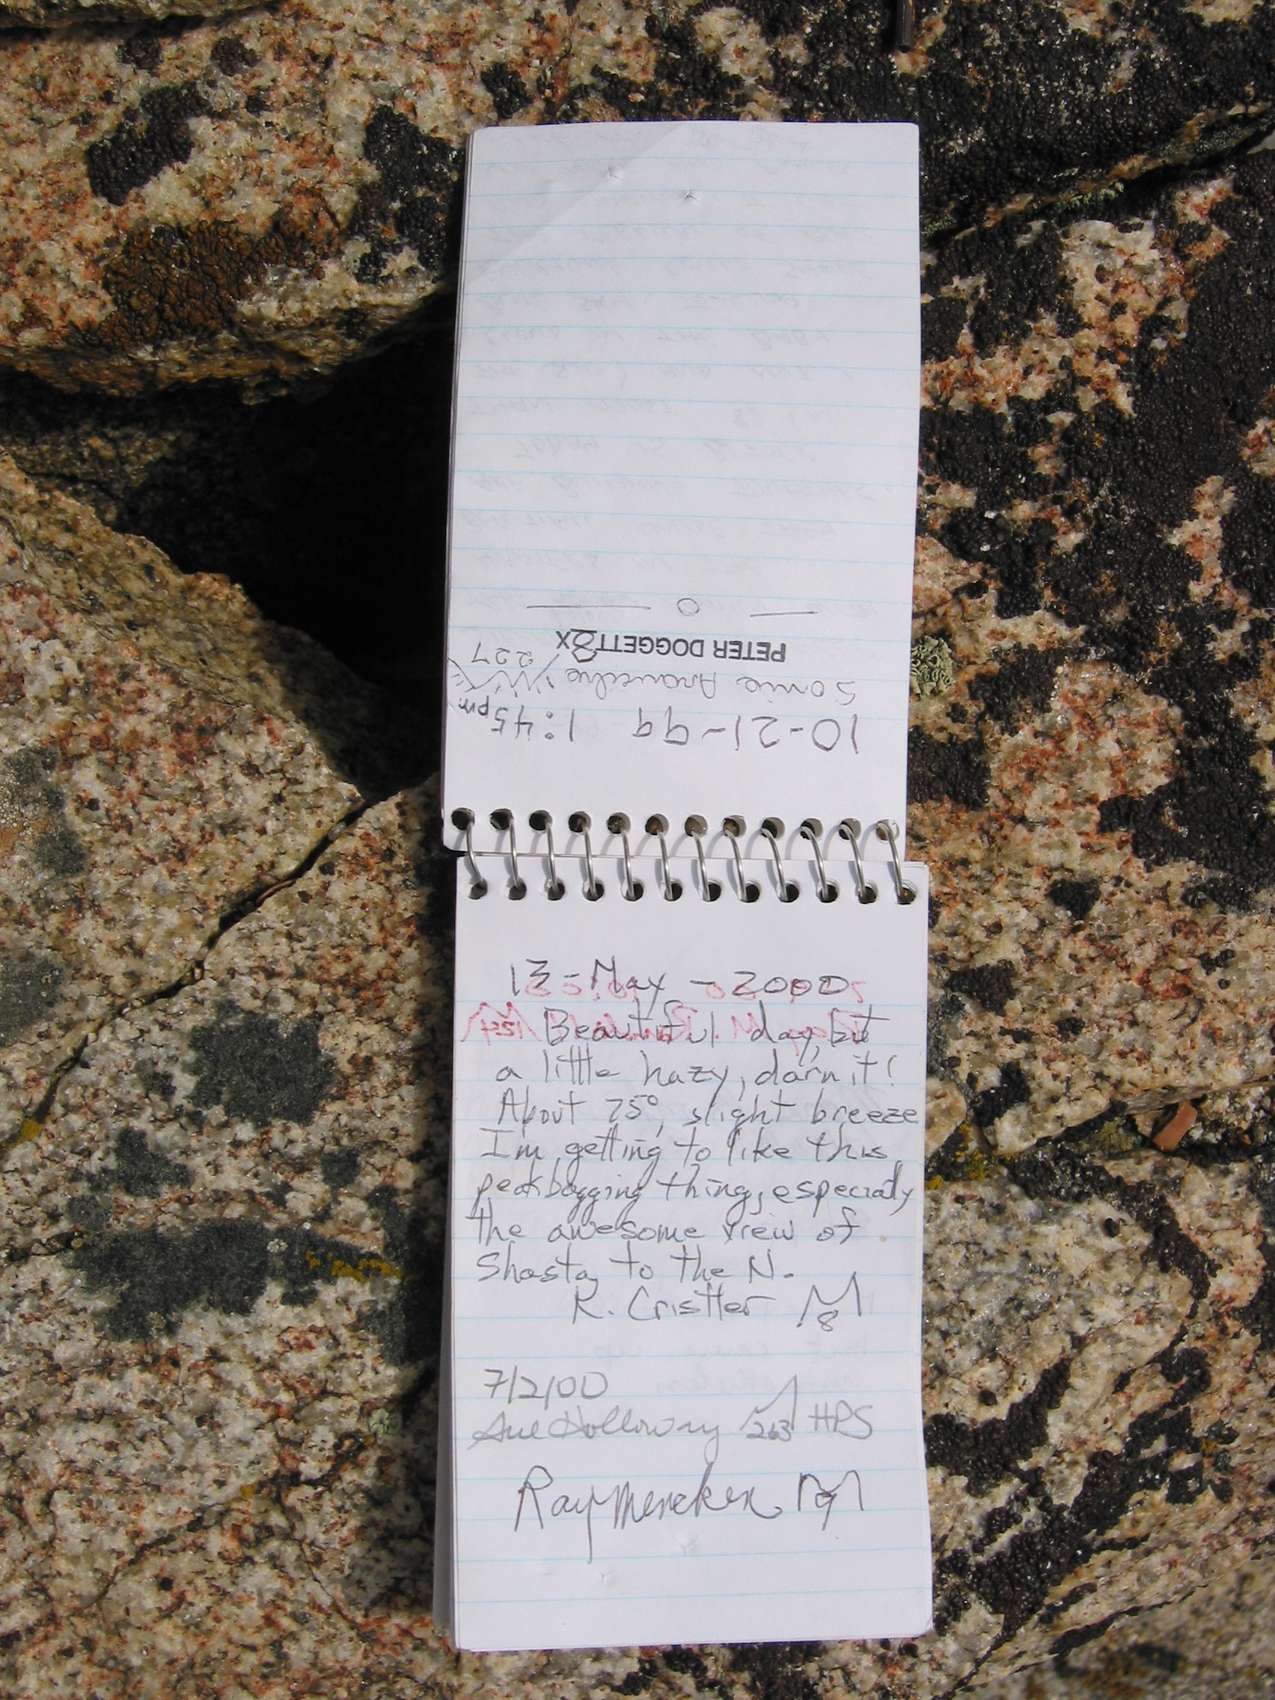 10-21-99 1:45pm
Sonia Arauecho 227
PETER DOGGETT 8X
13-May-2000
Beautiful day, but
a little hazy, darn it!
About 75°, slight breeze
I'm getting to like this
peakbagging thing, especially
the awesome view of
Shasta, to the N.
R. Cristler 8
7/2/00
Sue Holloway 263 HPS
Ray Mencken